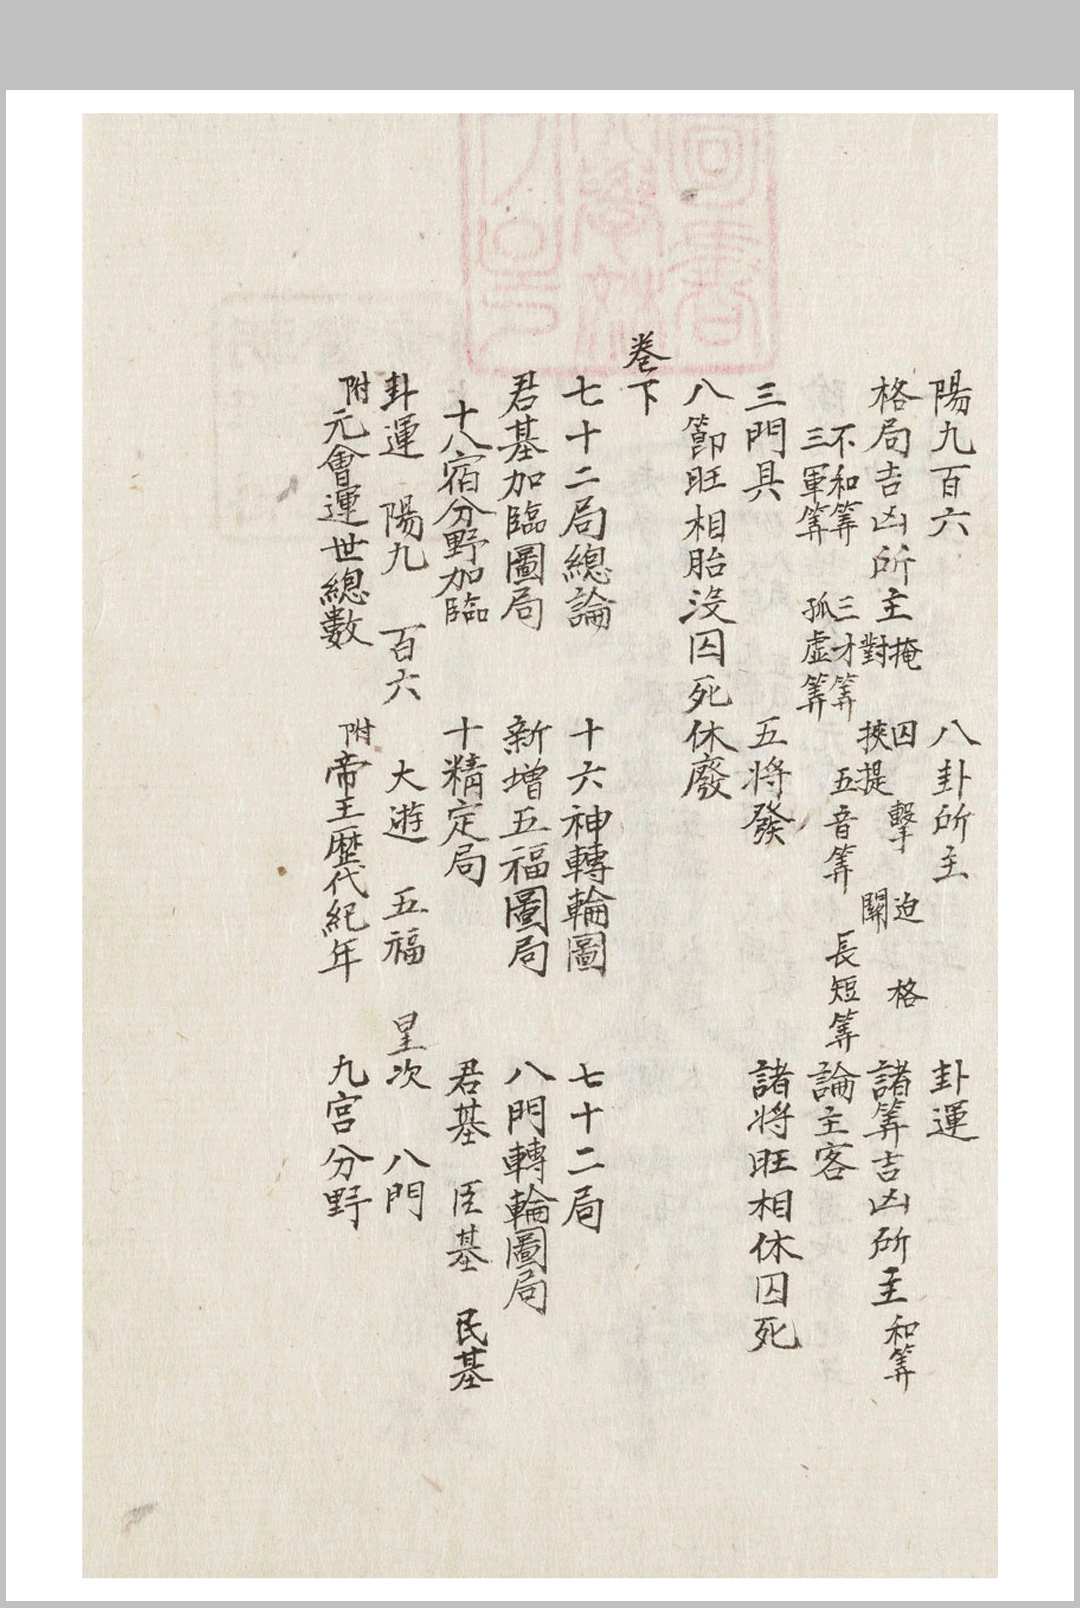 陽九百六　八卦所主　卦運
格局吉凶所主 掩 囚 擊 迫 格　諸筭吉凶所主 和筭
對 挾提 關
不和筭 三才筭 五音筭 長短筭　論主客
三軍筭 孤虛筭
三門具　五將發　諸將旺相休囚死
八節旺相胎沒囚死休廢
卷下
七十二局總論　十六神轉輪圖　七十二局
君基加臨圖局　新增五福圖局　八門轉輪圖局
十八宿分野加臨　十精定局　君基　臣基　民基
卦運　陽九　百六　大遊　五福　星次　八門
附元會運世總數　附帝王歷代紀年　九宮分野